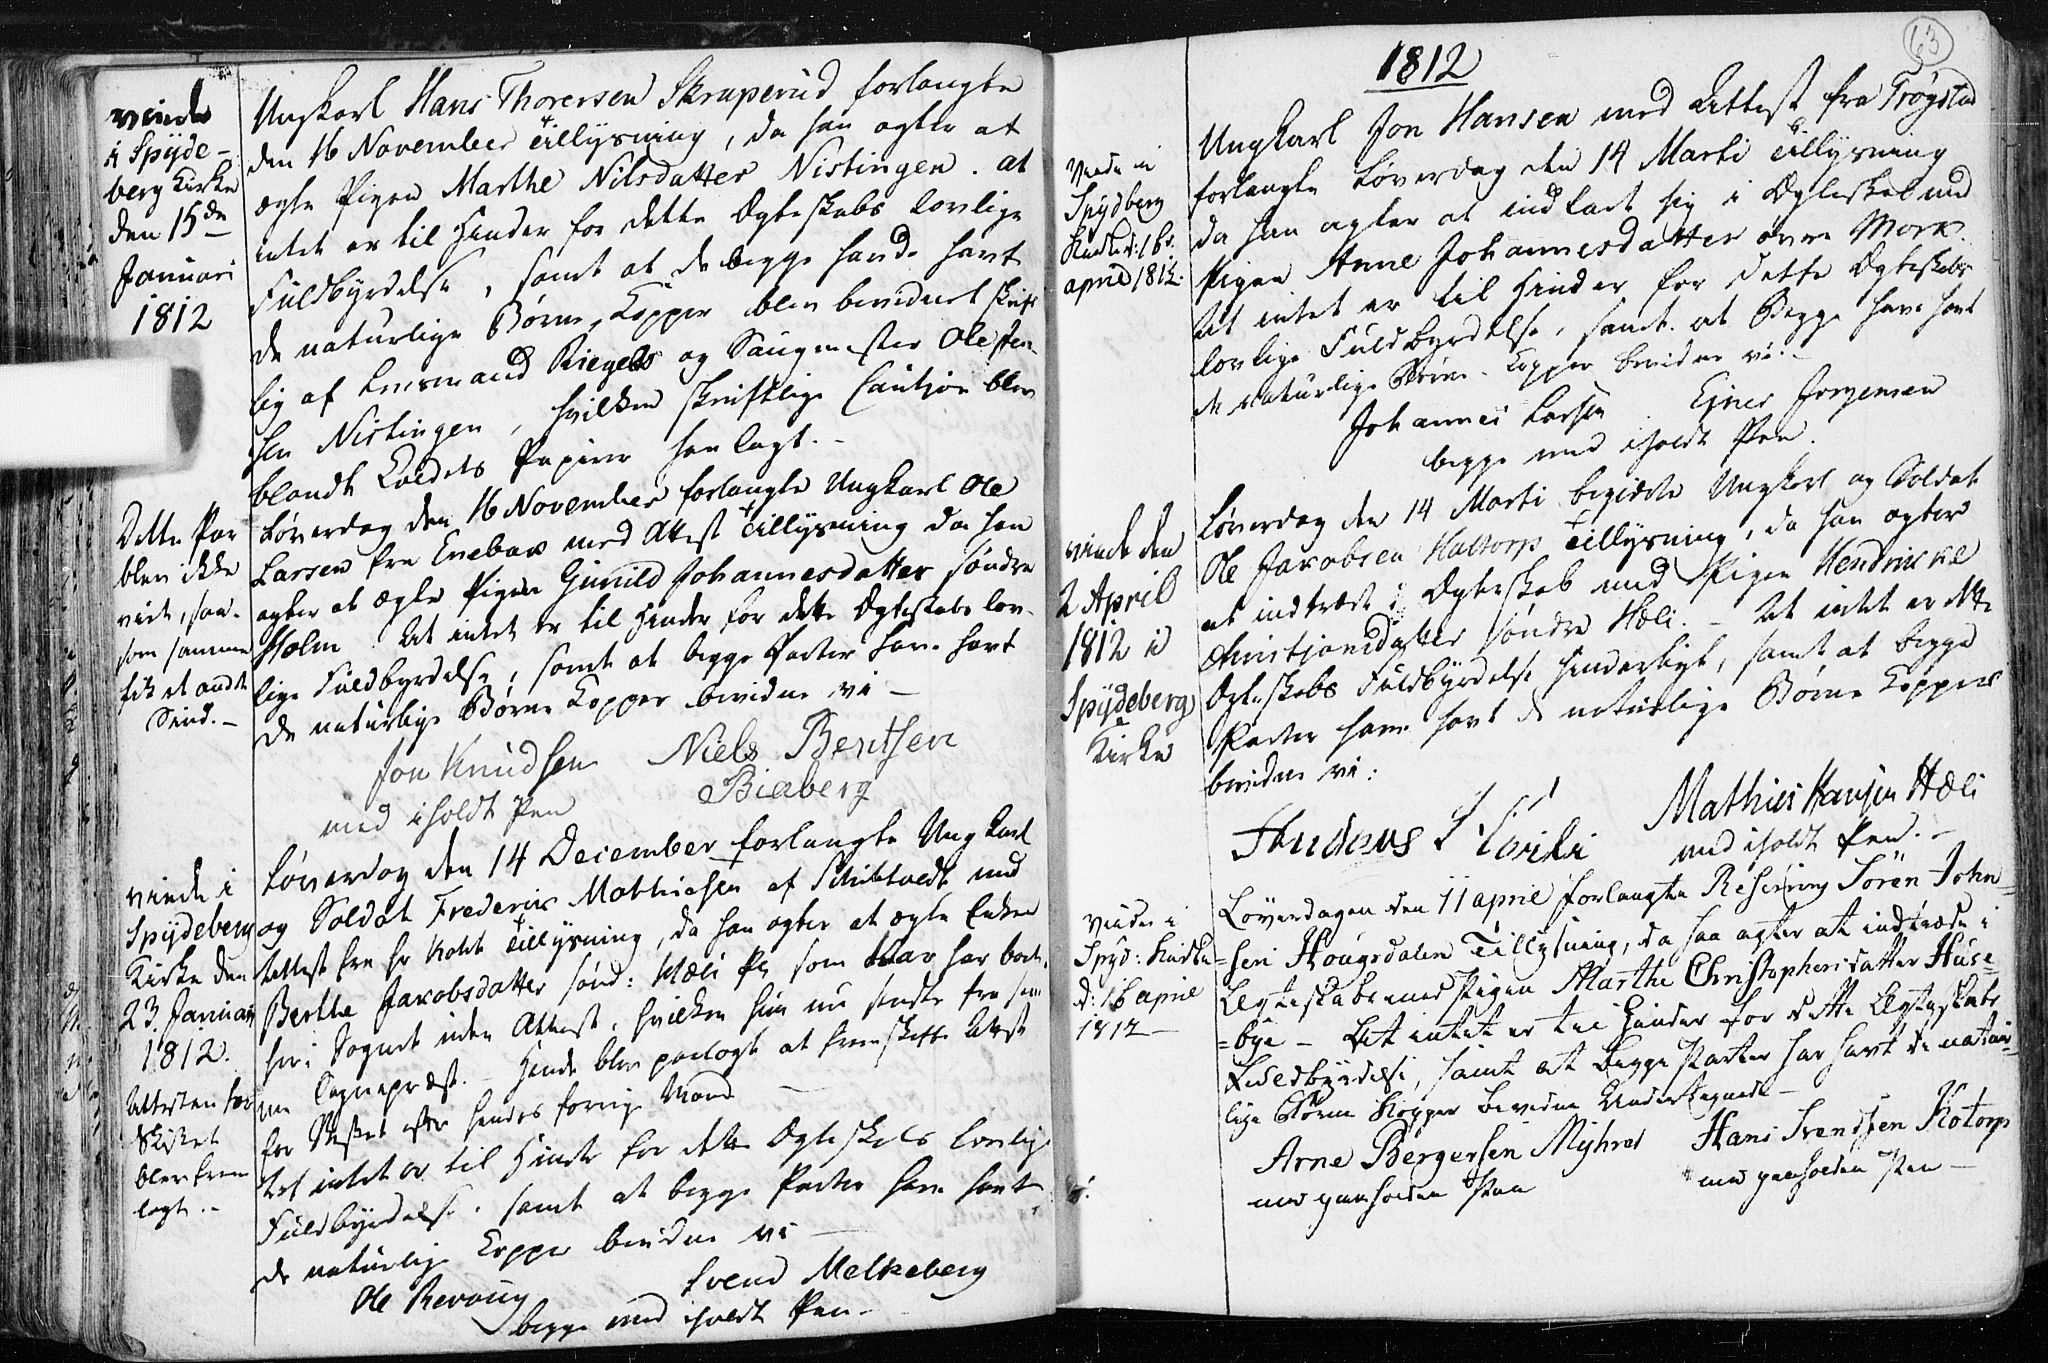 viede
i Spyde-
berg Kirke
den 15de
Januari
1812
Ungkarl Hans Thorersen Skruperud forlangte
den 16 November Tillysning, da han agter at
ægte Pigen Marthe Nilsdatter Nistingen. at
intet er til Hinder for dette Ægteskabs lovlige
Fuldbyrdelse, samt at de begge havde havt
de naturlige Børne-Kopper blev bevidnet skrift
lig af Lensmand Riegels og Saugmester Ole Sten-
sen Nistingen, hvilken skriftlige Caution blev
blandt Kaldets Papirer henlagt.-
Dette Par
blev ikke
viet, saa-
som samme
fik et andet
Sind.-
Løverdag den 16 November forlangte Ungkarl Ole
Larsen fra Enebak med Attest Tillysning da han
agter at ægte Pigen Gunild Johannesdatter søndre
Holm. At intet er til Hinder for dette Ægteskabs lov-
lige Fuldbyrdelse, samt at begge Parter have havt
de naturlige Børne Kopper bevidne vi-
Jon Knudsen Niels Bentsen
med iholdt Pen Biaberg
viede i
Spydeberg
Kirke den
23 Januari
1812.
Attesten for
Skiftet
blev frem
lagt.-
Løverdag den 14 December forlangte Ungkarl
og Soldat Frederik Mathiesen af Schibtvedt med
Attest fra Hr Koht Tillysning, da han agter at ægte Enken
Berthe Jakobsdatter sønd: Hæli Pl som har boet
her i Sognet uden Attest, hvilken hun nu sendte fra
Sognepræst.- Hende blev paalagt at fremskaffe Attest
for Skiftet efter hendes forrige Mand
At intet er til Hinder for dette Ægteskabs lovlige
Fuldbyrdelse, samt at begge Parter have havt
de naturlige Kopper bevidne vi-
Ole Revoug Svend Melkeberg
begge med iholdt Pen-
63
1812
Viede i
Spydberg
Kirke d: 16
april 1812.
Ungkarl Jon Hansen med Attest fra Trøgstad
forlangte Løverdag den 14 Marti Tillysning
da han agter at indlade sig i Ægteskab med
Pigen Anne Johannesdatter øvre Mork.
At intet er til Hinder for dette Ægteskabs
lovlige Fuldbyrdelse, samt at Begge have havt
de naturlige Børne-Kopper bevidne vi.-
Johannes Larsen Ejner Jørgensen
begge med iholdt Pen.
viede den
2 April
1812 i
Spydeberg
Kirke
Løverdag den 14 Marti begierte Ungkarl og Soldat
Ole Jakobsen Haltorp Tillysning, da han agter
at indtræde i Ægteskab med Pigen Hendrikke
Christiansdatter søndre Hæli.- At intet er dette
Ægteskabs Fuldbyrdelse hinderligt, samt at begge
Parter have havt de naturlige Børne Kopper
bevidne vi:
Mathies Hansen Hæli
med iholdt Pen.-
Viede i
Spyd: Kirke
d: 16 april
1812-
Løverdagen den 11 april forlangte Søren John-
-sen Hougsdalen Tillysning, da han agter at indtræde i
Ægteskab med Pigen Marthe Christophersdatter Huse-
=bye - At intet er til Hinder for dette Ægteskabs
Fuldbyrdelse, samt at begge Parter har havt de natur-
lige Børne Kopper bevidne Undertegnede-
Arne Bergersen Myhre Hans Svendsen Kotorp
med paaholden Pen med paaholden Pen-